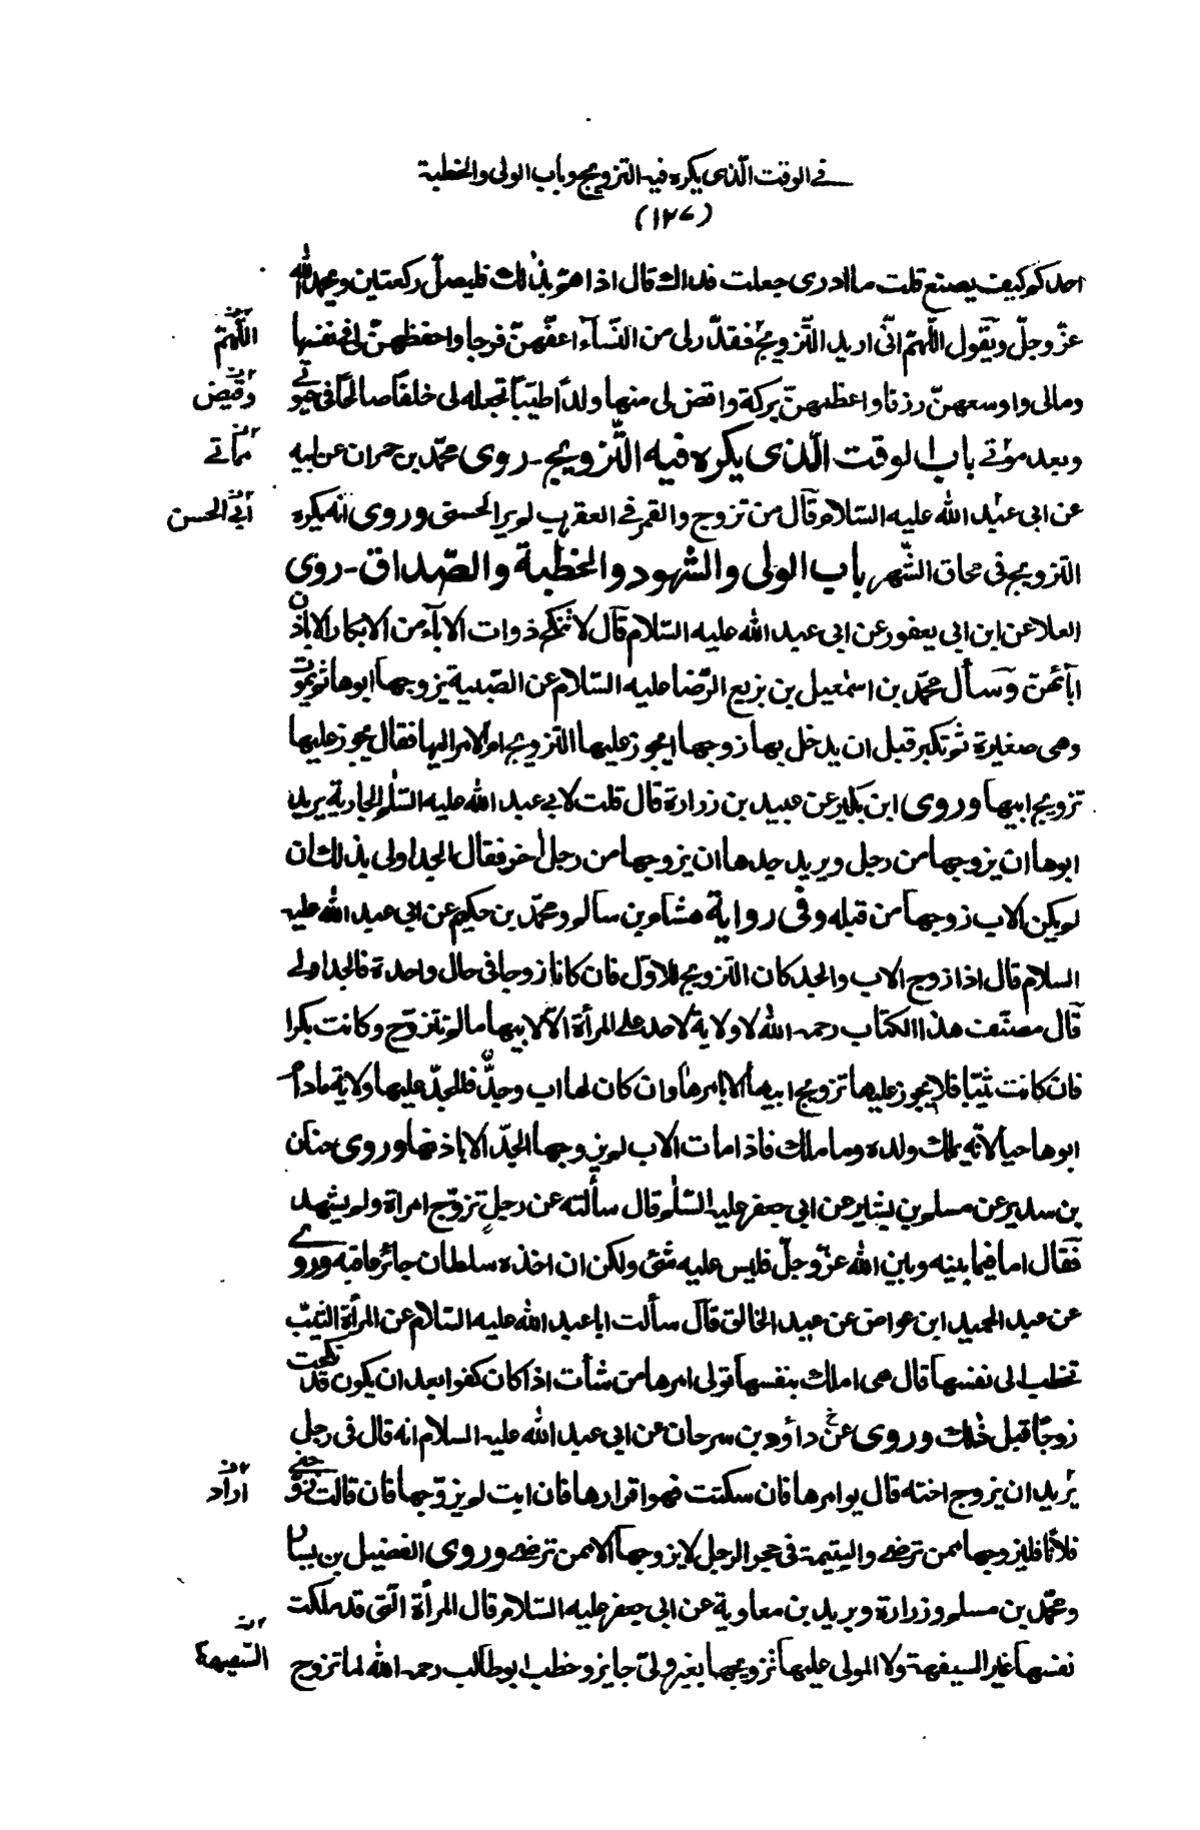 في الوقت الّذى يكره فيه التزويج وباب الولى والخطبة
(١٢٧)
احدكم كيف يصنع قلت ما ادرى جعلت فداك قال اذا همّ بذلك فليصلّ ركعتين ويحمد الله
عزّ وجلّ ويقول اللّهمّ انّى اريد التّزويج فقدّر لى من النّسآء اعفّهنّ فرجا واحفظهنّ لى في نفسها
اللّهمّ
ومالى واوسعهنّ رزقا واعظمهنّ بركة واقض لى منها ولداً طيّباً تجعله لى خلفاً صالحاً في حيوتي
وقيّض
وبعد موتي باب الوقت الّذى يكره فيه التّزويج - روى محمّد بن حمران عن ابيه
مماتي
عن ابى عبد الله عليه السّلام قال من تزوج والقمر في العقرب لم ير الحسنى وروى انّه يكره
ابي الحسن
التزويج في محاق الشّهر باب الولى والشهود والخطبة والصّداق - روى
العلا عن ابن ابى يعفور عن ابى عبد الله عليه السّلام قال لا تنكح ذوات الآبآء من الابكار الا باذن
ابآئهنّ وسأل محمّد بن اسمعيل بن بزيع الرّضا عليه السّلام عن الصّبية يزوجها ابوها ثم يموت
وهى صغيرة ثم تكبر قبل ان يدخل بها زوجها ايجوز عليها التزويج ام الامر اليها فقال يجوز عليها
تزويج ابيها وروى ابن بكير عن عبيد بن زرارة قال قلت لابى عبد الله عليه السّلم الجارية يريد
ابوها ان يزوجها من رجل ويريد جدها ان يزوجها من رجل آخر فقال الجد اولى بذلك ان
لم يكن الاب زوجها من قبله وفى رواية هشام بن سالم ومحمّد بن حكيم عن ابى عبد الله عليه
السلام قال اذا زوج الاب والجد كان التزويج للاوّل فان كانا زوجا في حال واحدة فالجد اولى
قال مصنّف هذا الكتاب رحمه الله لا ولاية لاحد على المرأة الّا لابيها ما لم تتزوّج وكانت بكرا
فان كانت ثيّبا فلا يجوز عليها تزويج ابيها الا بامرها وان كان لها اب وجدّ فللجدّ عليها ولاية مادام
ابوها حيا لانّه يملك ولده وما ملك فاذا مات الاب لم يزوجها الجدّ الا باذنها وروى حنان
بن سدير عن مسلم بن بشير عن ابى جعفر عليه السّلم قال سألته عن رجل تزوّج امراة ولم يشهد
فقال اما فيما بينه وبين الله عزّ وجلّ فليس عليه شئ ولكن ان اخذه سلطان جائر عاقبه وروى
عن عبد الحميد ابن عواض عن عبد الخالق قال سألت ابا عبد الله عليه السّلام عن المرأة الثيّب
تخطب الى نفسها قال هى املك بنفسها تولى امرها من شأت اذا كان كفوا بعد ان يكون قد نكحت
زوجًا قبل ذلك وروى عن داؤد بن سرحان عن ابى عبد الله عليه السلام انه قال في رجل
يريد ان يزوج اخته قال يوامرها فان سكتت فهو اقرارها فان ابت لم يزوّجها فان قالت زوّجنى
اراد
فلانًا فليزوجها ممن ترضى واليتيمة في حجر الرجل لا يزوجها الا ممن ترضى وروى الفضيل بن يسار
ومحمّد بن مسلم وزرارة وبريد بن معاوية عن ابى جعفر عليه السّلام قال المرأة الّتى قد ملكت
نفسها غير السفيهة ولا المولى عليها تزويجها بغير ولىّ جايز وخطب ابو طالب رحمه الله لما تزوج